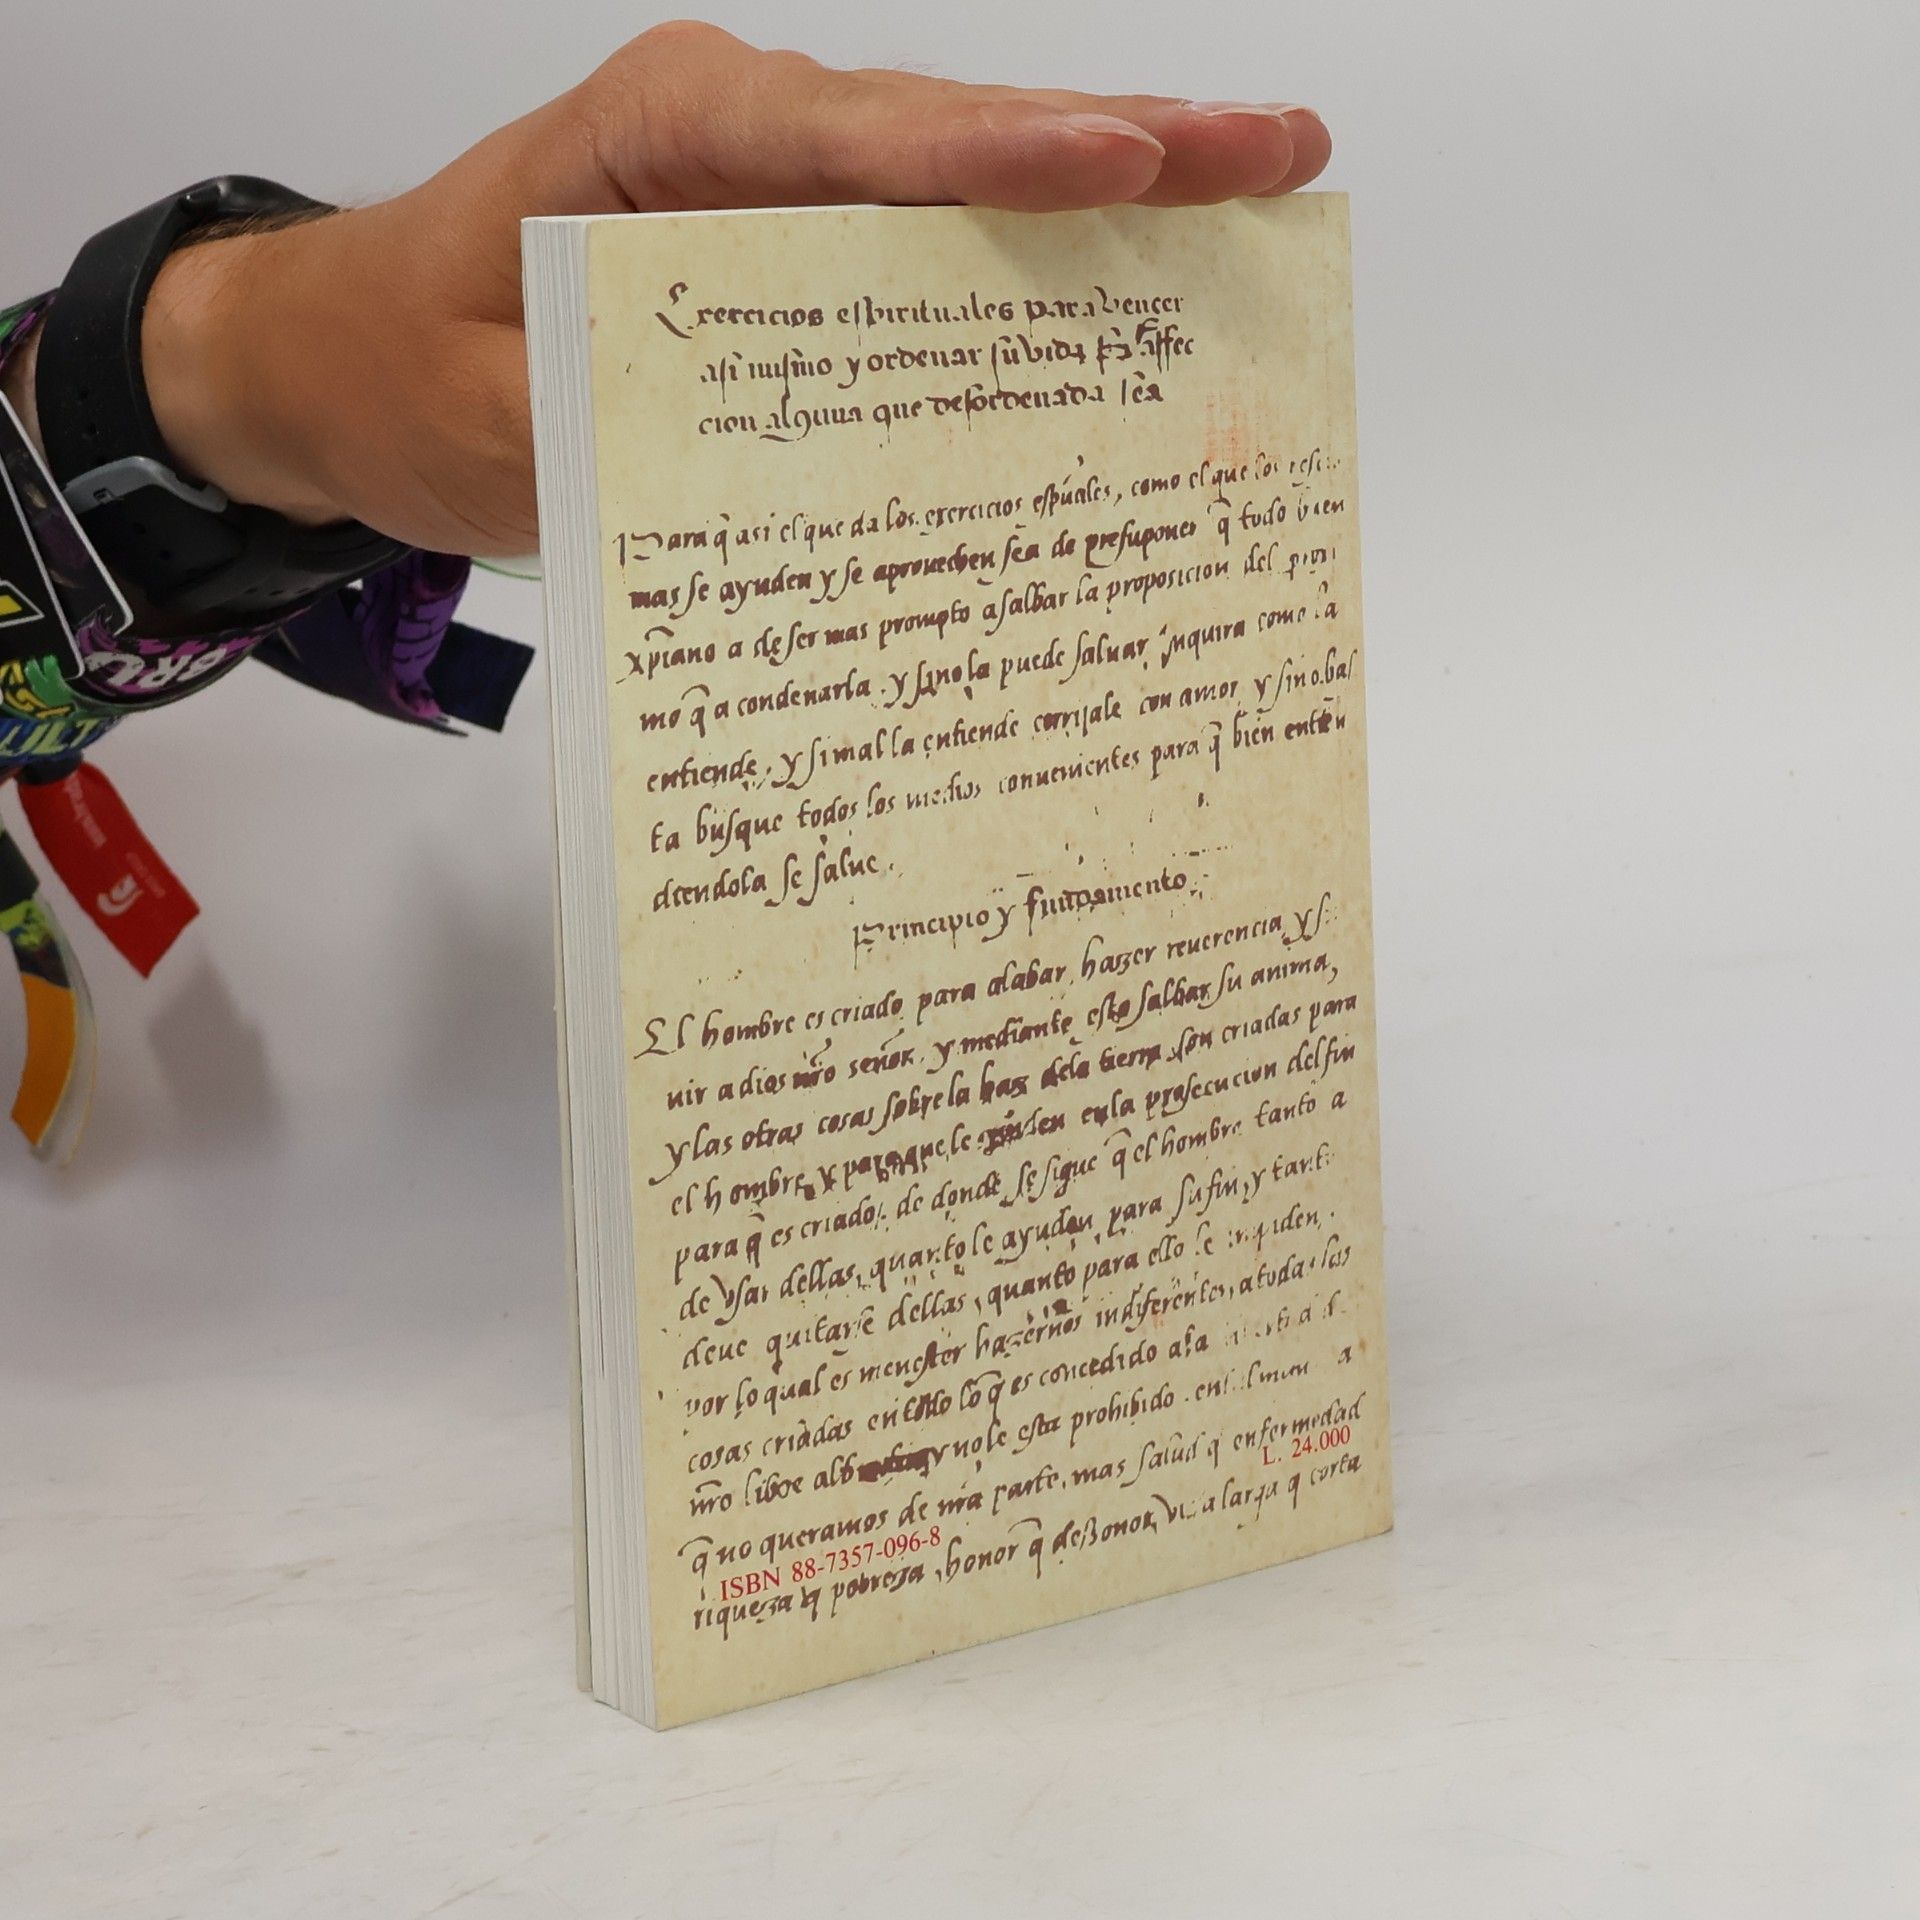 Exercicios espirituales para vencer
asi mismo y ordenar su vida sin
cion alguna que desordenada sea
Para q̄ asi el que da los exercicios espūales, como el que los
mas se ayuden y se aprouechen sea de presuponer q̄ todo buen
xp̄iano a de ser mas prompto a salbar la proposicion del
mo q̄ a condenarla. y si no la puede saluar, inquira como la
entiende, y si mal la entiende corrijale con amor, y si no bas
ta busque todos los medios conuenientes para q̄ bien entien
diendola se salue.
Principio y fundamento
El hombre es criado para alabar, hazer reuerencia, y
uir a dios nr̄o señor, y mediante esto salbar su anima,
y las otras cosas sobre la haz dela tierra son criadas para
el hombre, y para que le enla prosecucion del fin
para q̄ es criado, de donde se sigue q̄ el hombre tanto a
de Vsar dellas, quanto le ayuden para su fin, y tanto
deue quitarse dellas, quanto para ello le impiden.
por lo qual es menester hazernos indiferentes, a todas las
cosas criadas en todo lo q̄ es concedido a la
nr̄o libre y no le esta prohibido. a
q̄ no queramos de nr̄a parte, mas salud q̄ enfermedad
L. 24.000
ISBN 88-7357-096-8
riqueza q̄ pobreza, honor q̄ deshonor, larga q̄ corta